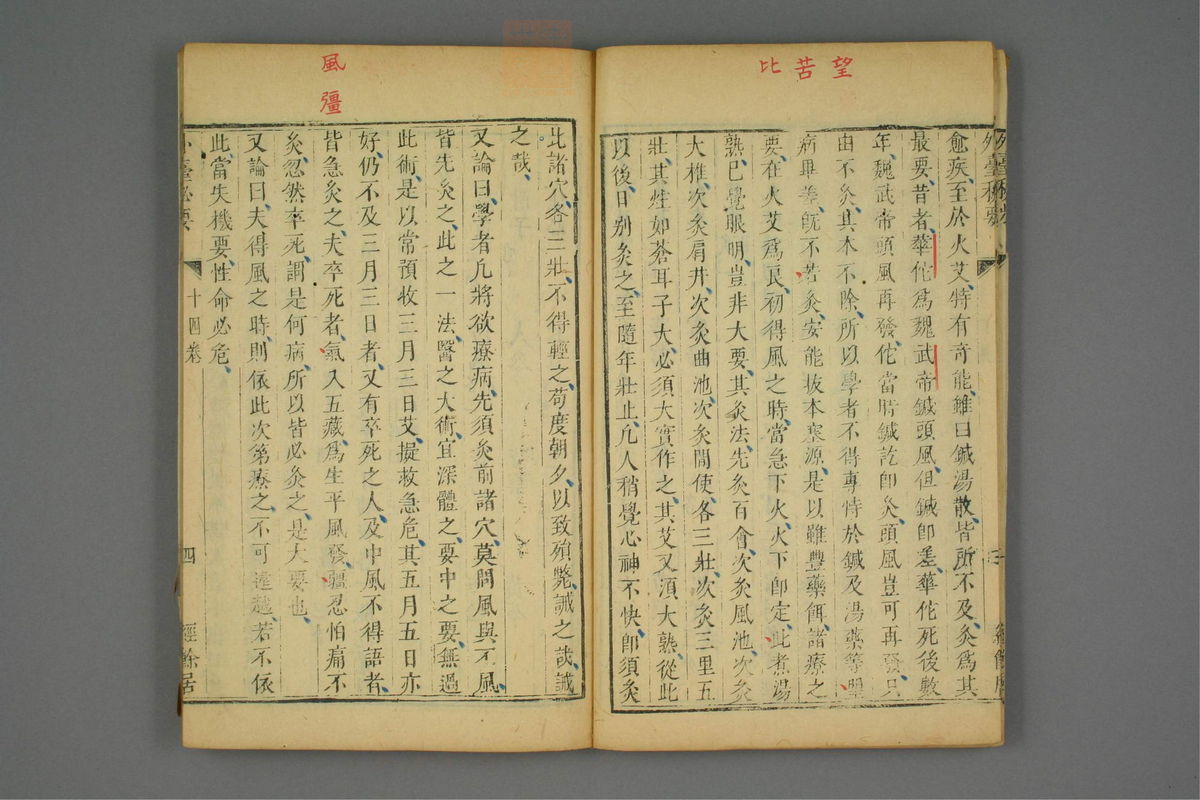 望
苦
比
愈疾、至於火艾、特有奇能、雖曰鍼湯散皆所不及、灸爲其
最要、昔者、華佗爲魏武帝鍼頭風、但鍼即差、華佗死後數
年、魏武帝頭風再發、佗當時鍼訖即灸、頭風豈可再發、只
由不灸、其本不除、所以學者不得專恃於鍼及湯藥等望
病畢差、旣不苦灸、安能拔本塞源、是以雖豐藥餌、諸療之
要、在火艾爲良、初得風之時、當急下火、火下即定、比煮湯
熟、已覺眼明、豈非大要、其灸法、先灸百會、次灸風池、次灸
大椎、次灸肩井、次灸曲池、次灸間使、各三壯、次灸三里五
壯、其炷如蒼耳子大、必須大實作之、其艾又須大熟、從此
以後、日別灸之、至隨年壯止、凡人稍覺心神不快、即須灸
風
彊
此諸穴、各三壯、不得輕之、苟度朝夕、以致殞斃、誡之哉、誡
之哉、
又論曰、學者凡將欲療病、先須灸前諸穴、莫問風與不風、
皆先灸之、此之一法、醫之大術、宜深體之、要中之要、無過
此術、是以常預收三月三日艾、擬救急危、其五月五日亦
好、仍不及三月三日者、又有卒死之人、及中風不得語者、
皆急灸之、夫卒死者、氣入五藏、爲生平風發、彊忍怕痛不
灸、忽然卒死、謂是何病、所以皆必灸之、是大要也、
又論曰、夫得風之時、則依此次第療之、不可違越、若不依
此、當失機要、性命必危、
十四卷
四
經餘居